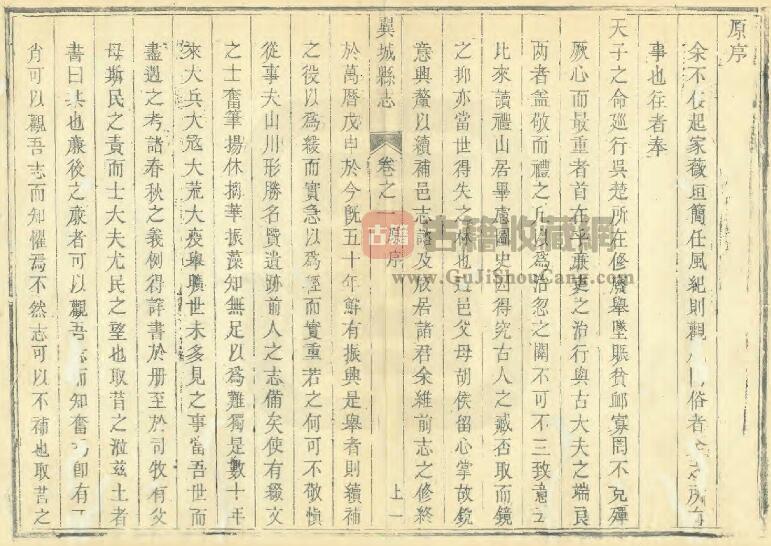 原序
余不佞起家薇垣簡任風紀則觀
事也往者奉
天子之命廵行吳楚所在修廢舉墜賑貧䘏寡罔不克殫
厥心而最重者首在乎之治行與古大夫之端良
两者葢敬而禮之凡以爲治忽之關不可不三致意
比來讀禮山居畢慮圖史得究古人之臧否取而鏡
之抑亦當世得失之林也邑父母胡侯留心掌故銳
意興釐以續補邑志諮及放居諸君余維前志之修終
翼城縣志
卷之一
原序
上一
於萬曆戊申於今旣五十年鮮有振興是舉者則續補
之役以爲緩而實急以爲輕而實重若之何可不敬愼
從事夫山川形勝名賢遺跡前人之志備矣使有綴文
之士奮筆揚休摛華振藻知無足以爲難獨是數十年
來大兵大寇大荒大疫舉曠世未多見之事當吾世而
盡遇之考諸春秋之義例得詳書於册至於司牧有父
母斯民之責而士大夫尤民之望也取昔之涖玆土者
書曰某也廉後之廉者可以觀吾志而知奮焉卽有
肖可以觀吾志而知懼焉不然志可以不補也取昔之
古籍
古籍收藏網
www.GuJiShouCang.com